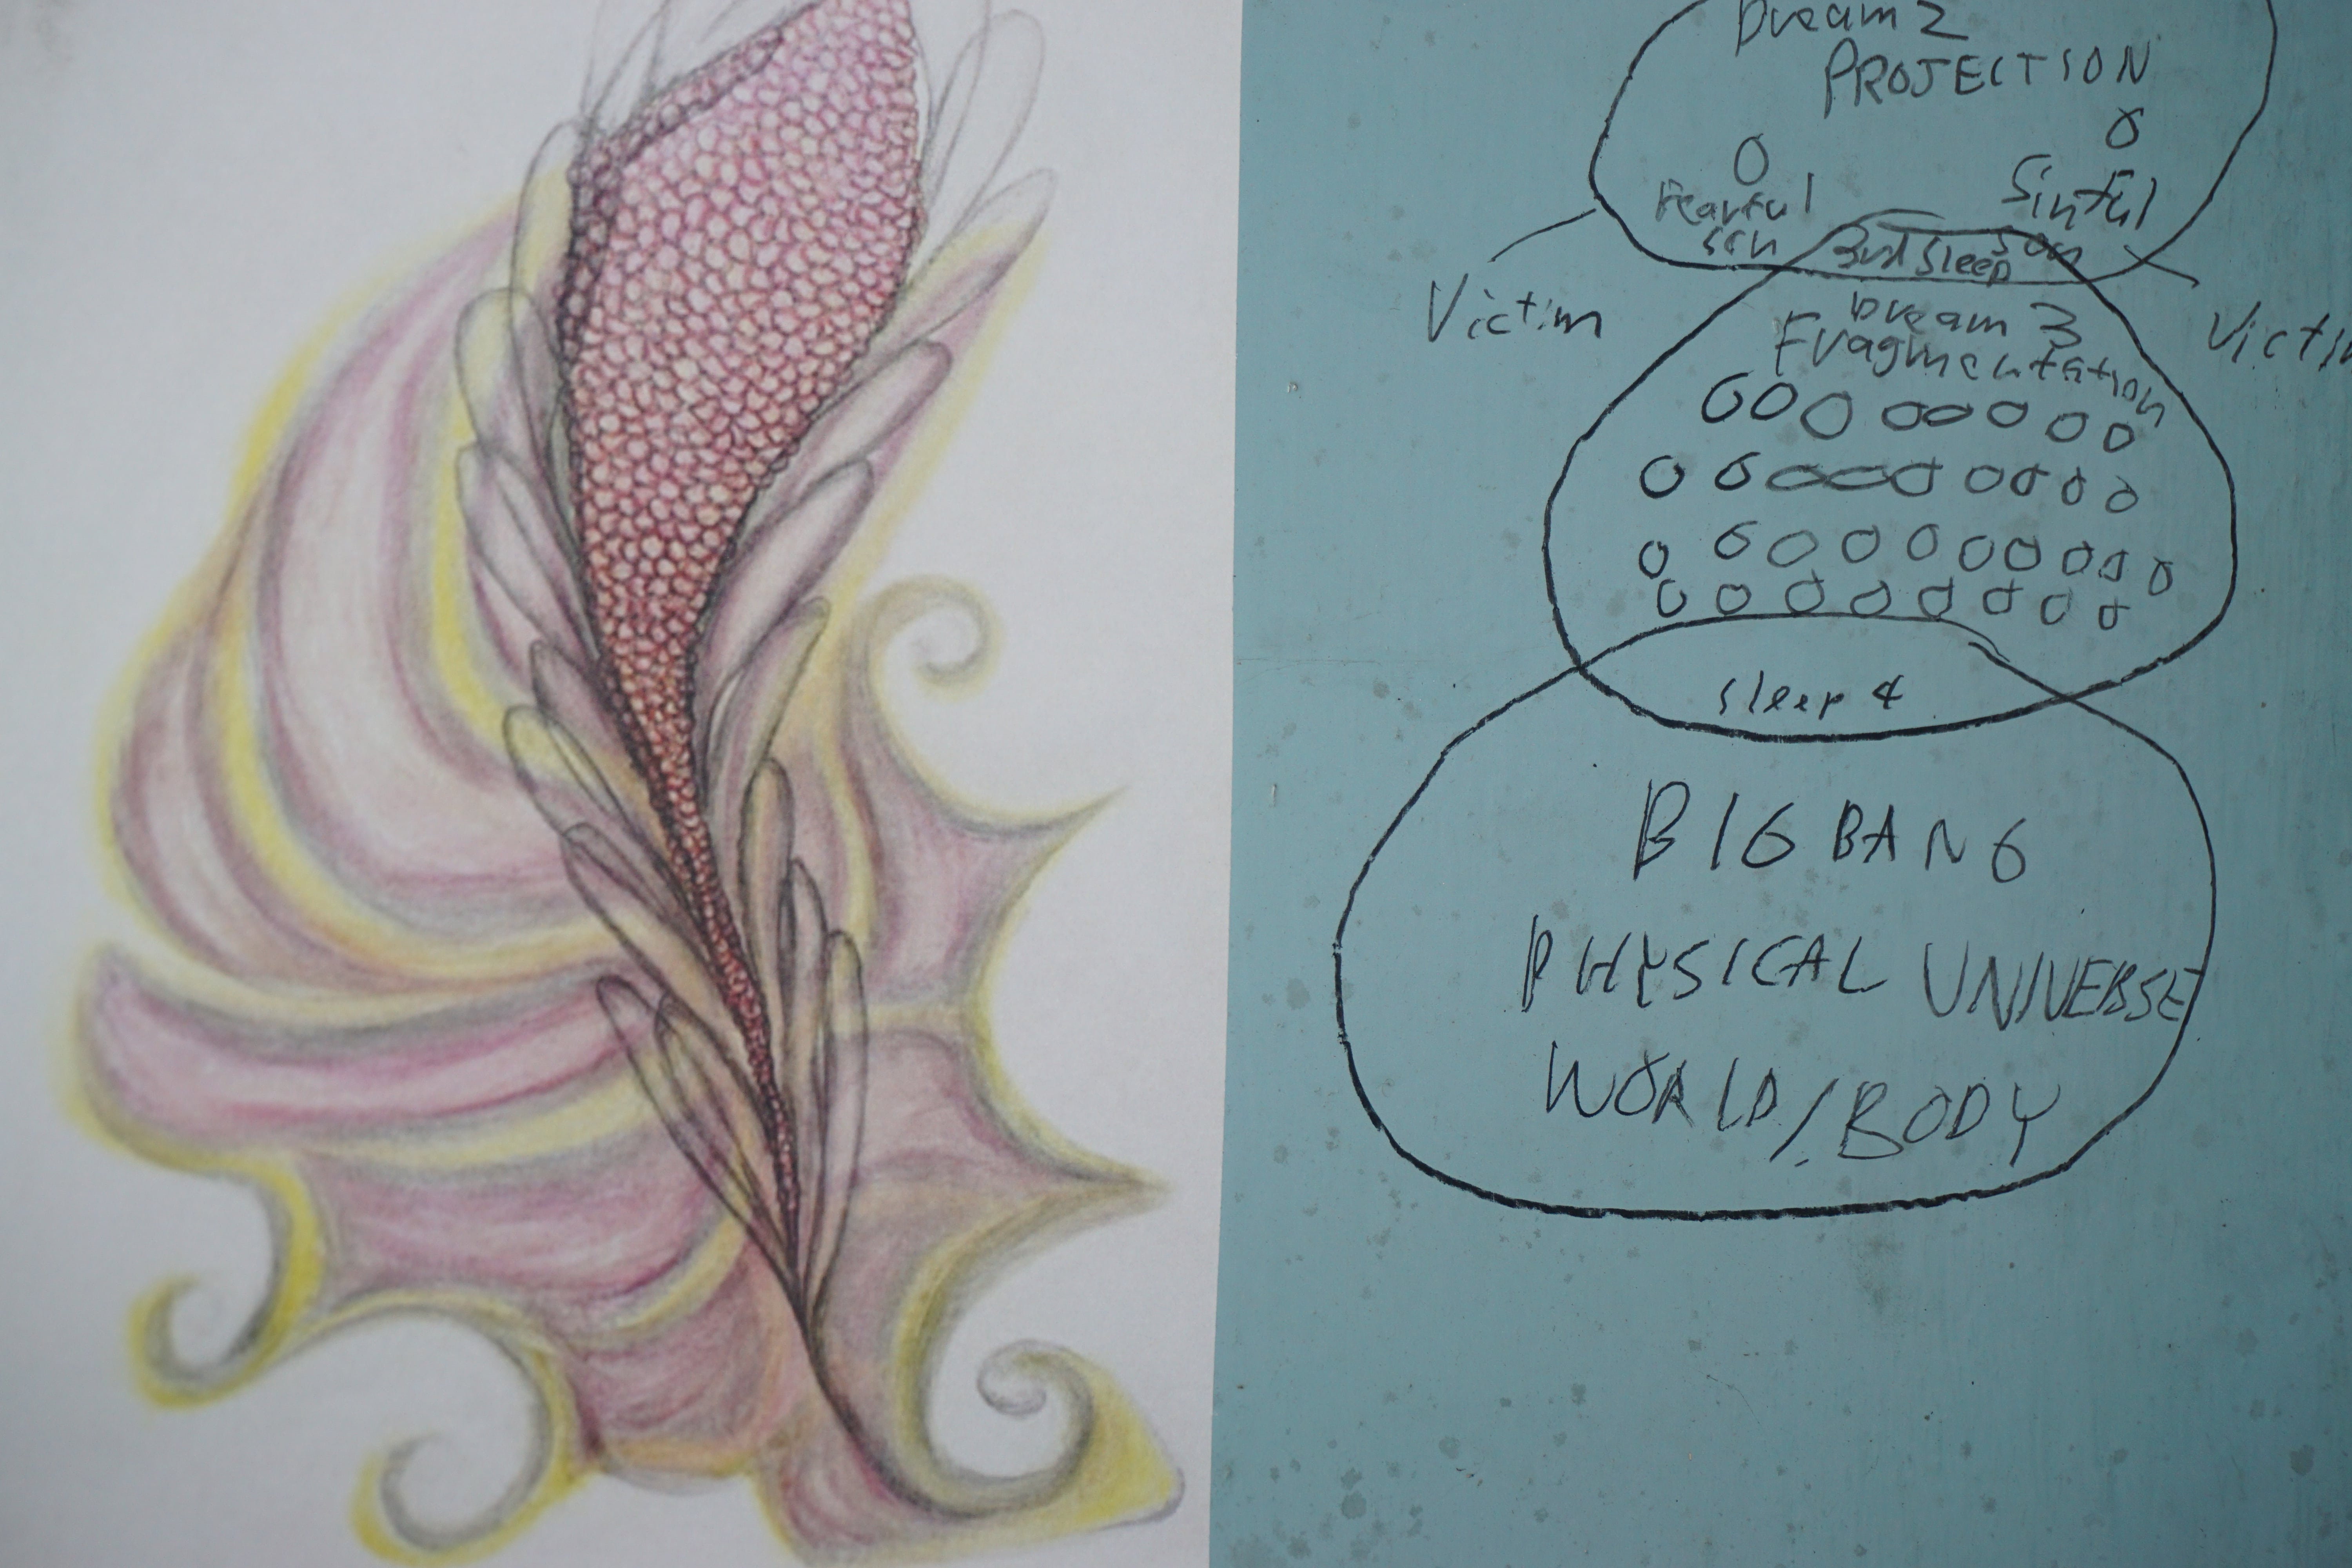 Dream 2
PROJECTION
Fearful
son
Sinful
son
3rd Sleep
Victim
Victim
Dream 3
Fragmentation
sleep 4
BIG BANG
PHYSICAL UNIVERSE
WORLD/BODY